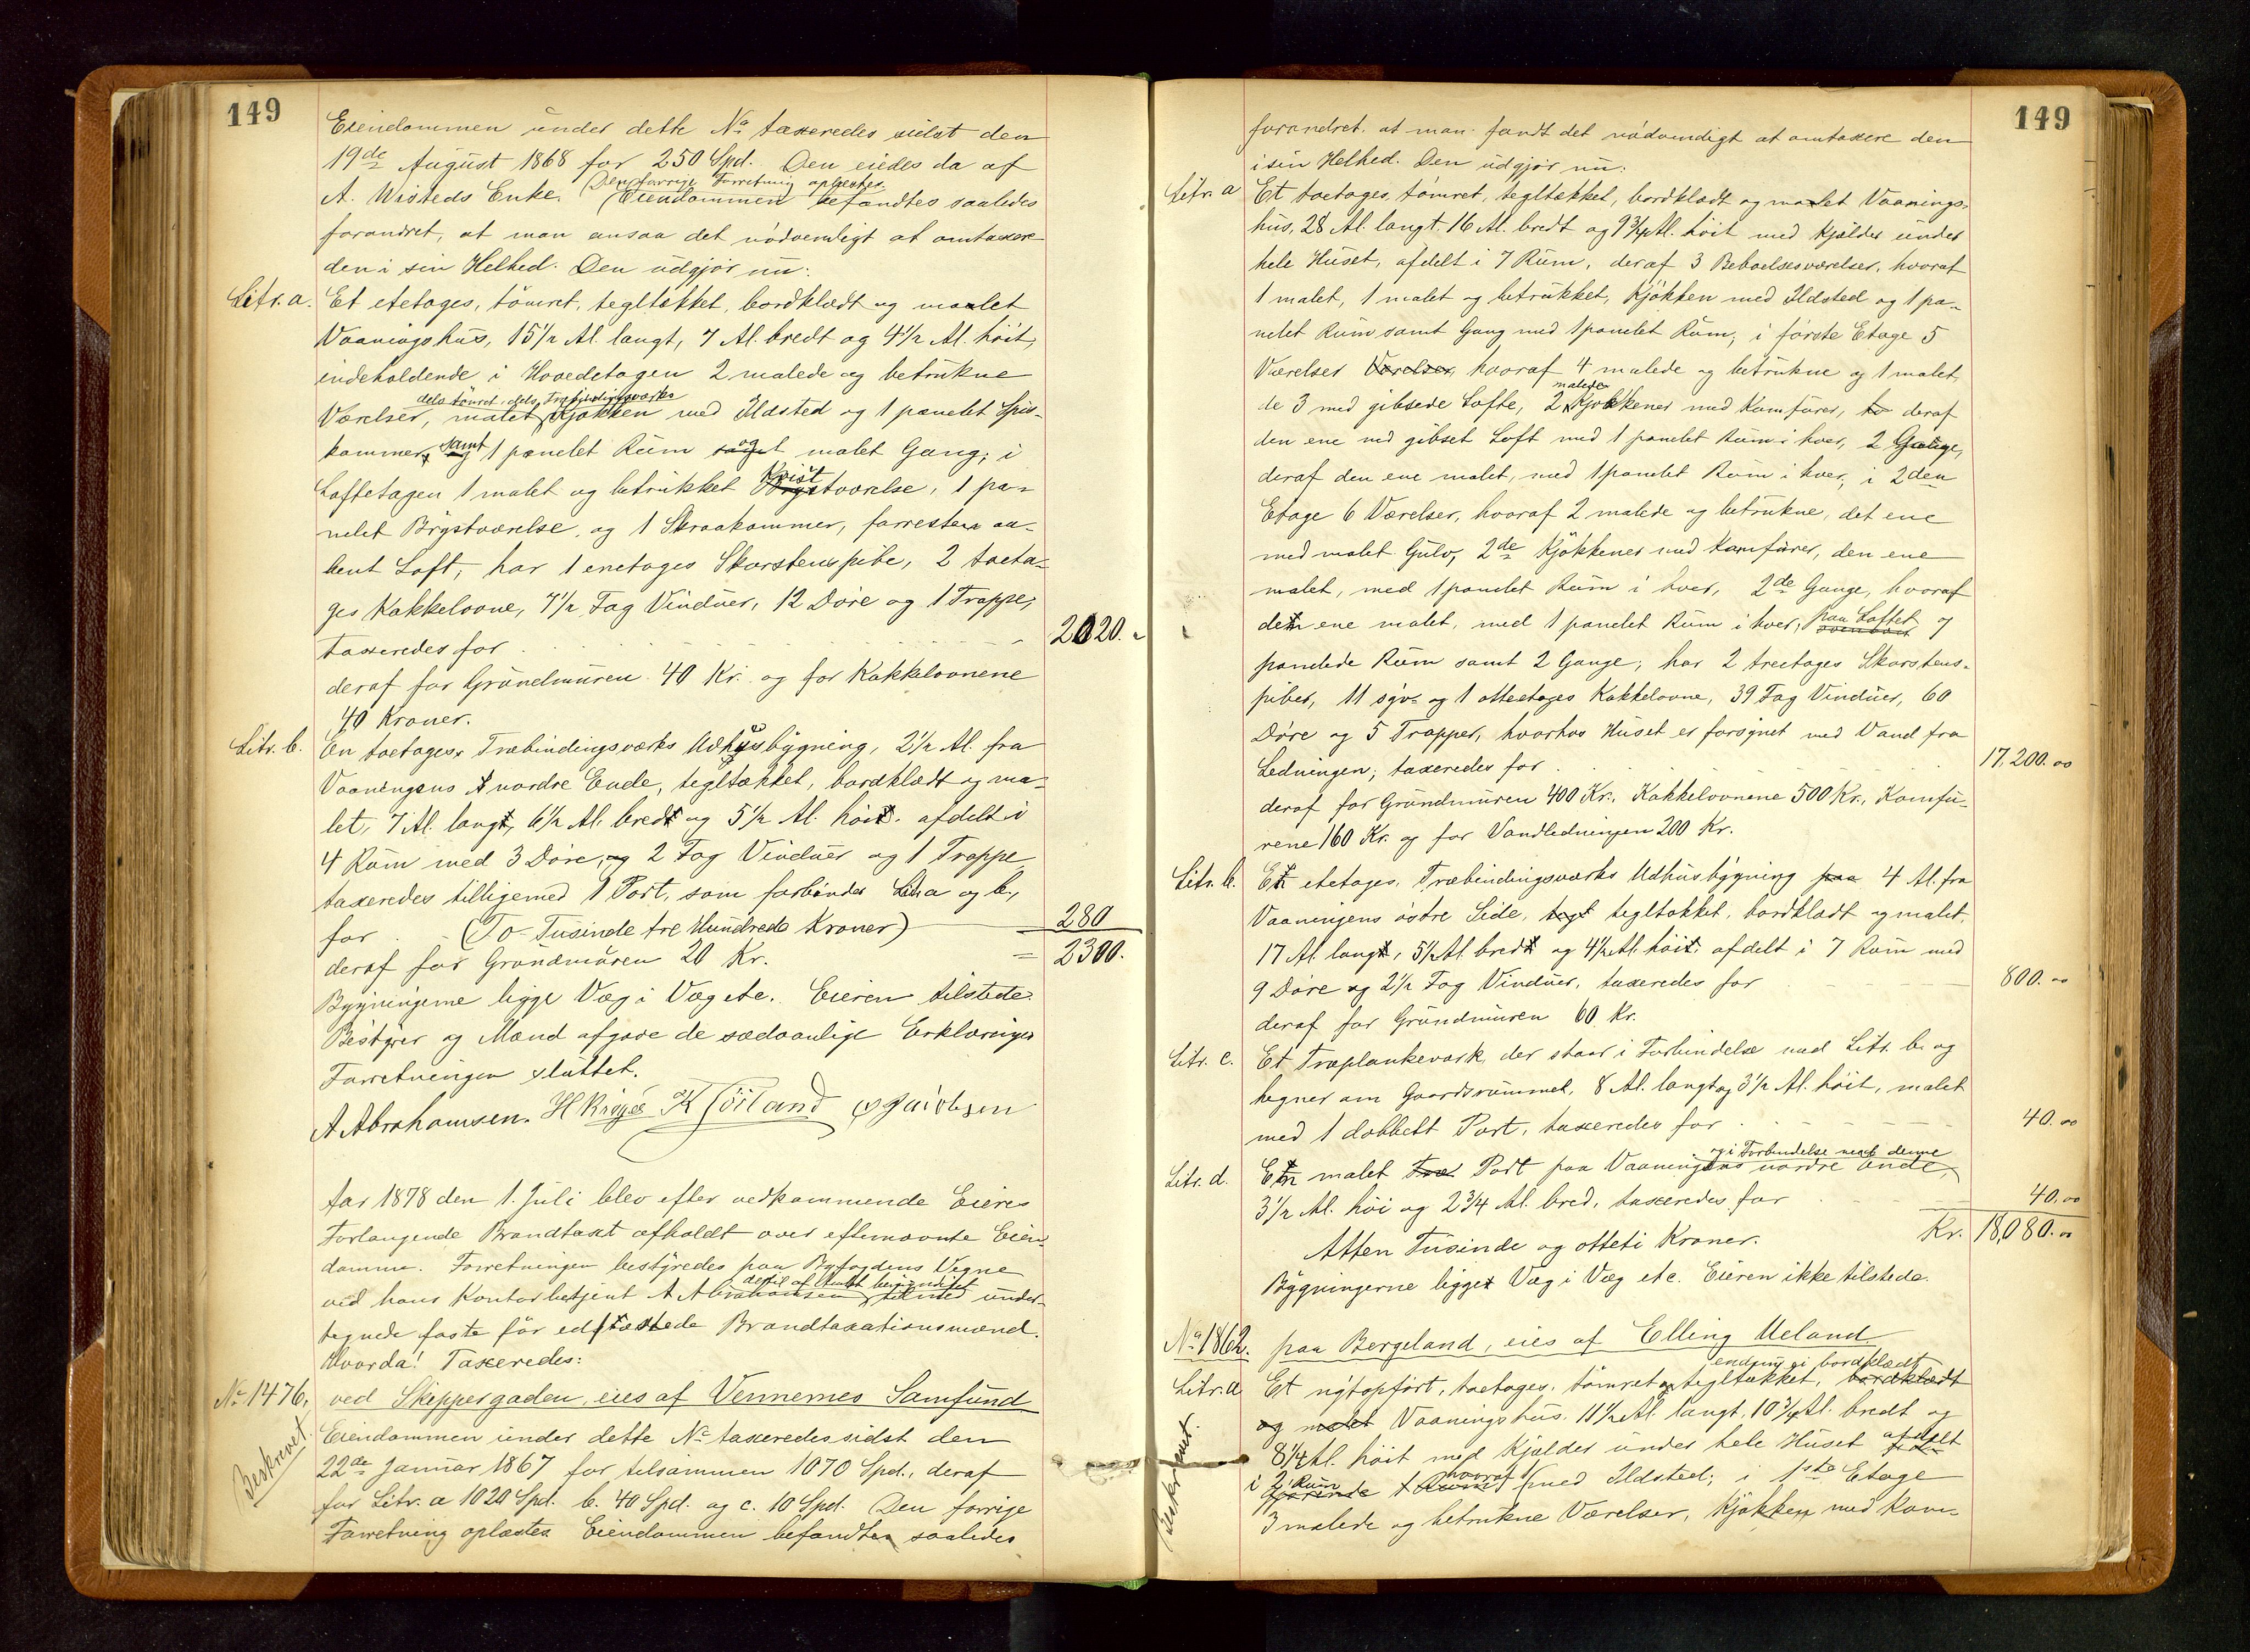 149
Eiendommen under dette No taxeredes sidst den
19de August 1868 for 250 Spd. Den eiedes da af
Den forrige Forretning oplæstes.
A. Wisteds Enke. Eiendommen befandtes saaledes
forandret, at man ansaa det nödvendigt at omtaxere
den i sin Helhed. Den udgjör nu:
Litr. a. Et etetages, tömret, tegltækket, bordklædt og malet
Vaaningshus, 15 1/2 Al. langt, 7 Al. bredt og 4 1/2 Al. höit,
indeholdende i Hovedetagen 2 malede og betrukne
dels tömret, dels Træbindingsværks
Værelser, malet Kjökken med Ildsted og 1 panelet Spis-
kammer, samt 1 panelet Rum og malet Gang; i
Loftetagen 1 malet og betrukket Kvistværelse, 1 pa-
nelet Brystværelse, og 1 Skraakammer, forresten aa-
bent Loft, har 1 enetages Skorstenspibe, 2 toeta-
ges Kakkelovne, 7 1/2 Fag Vinduer, 12 Döre og 1 Trappe;
taxeredes for 2020.-
deraf for Grundmuren 40 Kr. og for Kakkelovnene
40 Kroner.
Litr. b. En toetages Træbindingsværks Udhusbygning, 2 1/2 Al. fra
Vaaningens nordre Ende, tegltækket, bordklædt og ma-
let, 7 Al. lang, 6 1/2 Al. bred og 5 1/2 Al. höi. afdelt i
4 Rum med 3 Döre, og 2 Fag Vinduer og 1 Trappe
taxeredes tilligemed 1 Port, som forbinder Litr a og b.,
for (To Tusinde tre Hundrede Kroner) 280
deraf for Grundmuren 20 Kr. = 2300.
Bygningerne ligge Væg i Væg etc. Eieren tilstede.
Bestyrer og Mænd afgave de sædvanlige Erklæringer
Forretningen sluttet.
A Abrahamsen. H Kröger K Törland Jacobsen
Aar 1878 den 1. Juli blev efter vedkommende Eieres
Forlangende Brandtaxt afholdt over eftenævnte Eien-
domme. Forretningen bestyredes paa Byfogdens Vegne
dertil af Amtet beskikket
ved hans Kontorbetjent A Abrahamsen tilmed under-
tegnede faste för edfæstede Brandtaxationsmænd.
Hvorda! Taxeredes:
No 1476. ved Skippergaden, eies af Vennernes Samfund
Beskrevet.
Eiendommen under dette No taxeredes sidst den
22de Januar 1867 for tilsammen 1070 Spd., deraf
for Litr. a 1020 Spd. b. 40 Spd. og c. 10 Spd. Den forrige
Forretning oplæstes. Eiendommen befandtes saaledes
149
forandret. at man fandt det nödvendigt at omtaxere den
i sin Helhed. Den udgjör nu:
Litr. a Et toetages, tömret, tegltækket, bordklædt og malet Vaanings-
hus, 28 Al. langt. 16 Al. bredt og 9 3/4 Al. höit med Kjælder under
hele Huset, afdelt i 7 Rum, deraf 3 Beboelsesværelser, hvoraf
1 malet, 1 malet og betrukket, Kjökken med Ildsted og 1 pa-
nelet Rum samt Gang med 1 panelet Rum; i förste Etage 5
Værelser Værelser, hvoraf 4 malede og betrukne og 1 malet,
malede
de 3 med gibsede Lofte, 2 Kjökkener med Komfurer, to deraf
den ene med gibset Loft med 1 panelet Rum i hver, 2 Gange,
deraf den ene malet, med 1 panelet Rum i hver; i 2den
Etage 6 Værelser, hvoraf 2 malede og betrukne, det ene
med malet Gulv, 2de Kjökkener med Komfurer, den ene
malet, med 1 panelet Rum i hver, 2de Gange, hvoraf
den ene malet, med 1 panelet Rum i hver, paa Loftet 7
panelede Rum samt 2 Gange; har 2 treetages Skorstens-
piber, 11 syv- og 1 otteetages Kakkelovne, 39 Fag Vinduer, 60
Döre og 5 Trapper, hvorhos Huset er forsynet med Vand fra
Ledningen; taxeredes for 17,200.00
deraf for Grundmuren 400 Kr., Kakkelovnene 500 Kr., Komfu-
rene 160 Kr. og for Vandledningen 200 Kr.
Litr. b. En etetages, Træbindingsværks Udhusbygning paa 4 Al. fra
Vaaningens östre Side, tegl tegltækket, bordklædt og malet,
17 Al. lang, 5 1/2 Al. bred og 4 1/2 Al. höi. afdelt i 7 Rum med
9 Döre og 2 1/2 Fag Vinduer, taxeredes for 800.00
deraf for Grundmuren 60 Kr.
Litr. c. Et Træplankeværk, der staar i Forbindelse med Litr. b. og
hegner om Gaardsrummet, 8 Al. langt og 3 1/2 Al. höit, malet
med 1 dobbelt Port, taxeredes for 40.00
og i Forbindelse med denne
Litr. d. En malet Træ Port paa Vaaningens nordre Ende,
3 1/2 Al. höi og 2 3/4 Al. bred, taxeredes for 40.00
Atten Tusinde og otteti Kroner. Kr. 18,080.00
Bygningerne ligge Væg i Væg etc. Eieren ikke tilstede.
No 1862. paa Bergeland, eies af Elling Ueland.
bordklædt
Litr. a Et nytopfört, toetages, tömret og tegltækket, bordklædt
Beskrevet.
og malet Vaaningshus. 11 1/2 Al. langt, 10 3/4 Al. bredt og
8 1/4 Al. höit med Kjælder under hele Huset afdelt
i 2 Rum hvoraf 1 med Ildsted; i 1ste Etage
3 malede og betrukne Værelser, Kjökken med Kom-